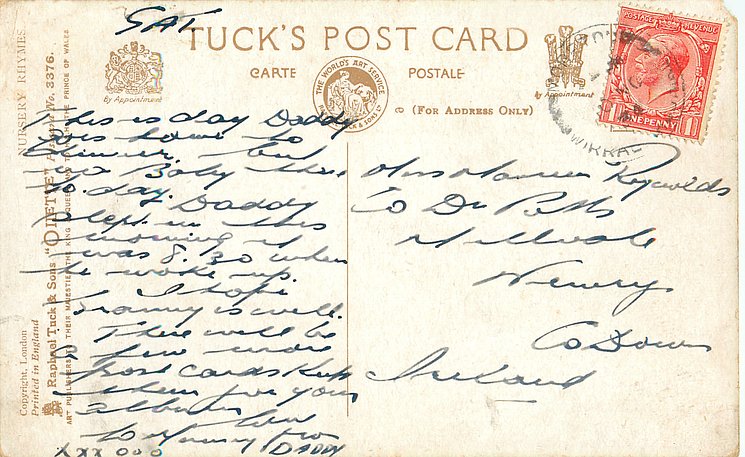 SAT
TUCK'S POST CARD
CARTE POSTALE
By Appointment
THE WORLD'S ART SERVICE
RAPHAEL TUCK & SONS LTD
By Appointment
(FOR ADDRESS ONLY)
POSTAGE REVENUE
ONE PENNY
1 1
WIRRAL
NURSERY RHYMES.
Raphael Tuck & Sons "OILETTE" Postcard No. 3376.
ART PUBLISHERS TO THEIR MAJESTIES THE KING & QUEEN AND TO H.R.H. THE PRINCE OF WALES
Copyright, London
Printed in England
This is day Daddy
goes home to
dinner. but
no Baby there
to day. Daddy
slept in this
morning it
was 8.30 when
he woke up.
I hope
Granny is well.
There will be
a few more
post cards Keep
them for your
album
to
DADDY
XXX OOO
Miss Reynolds
Co Dr Potts
Millvale
Newry
Co Down
Ireland